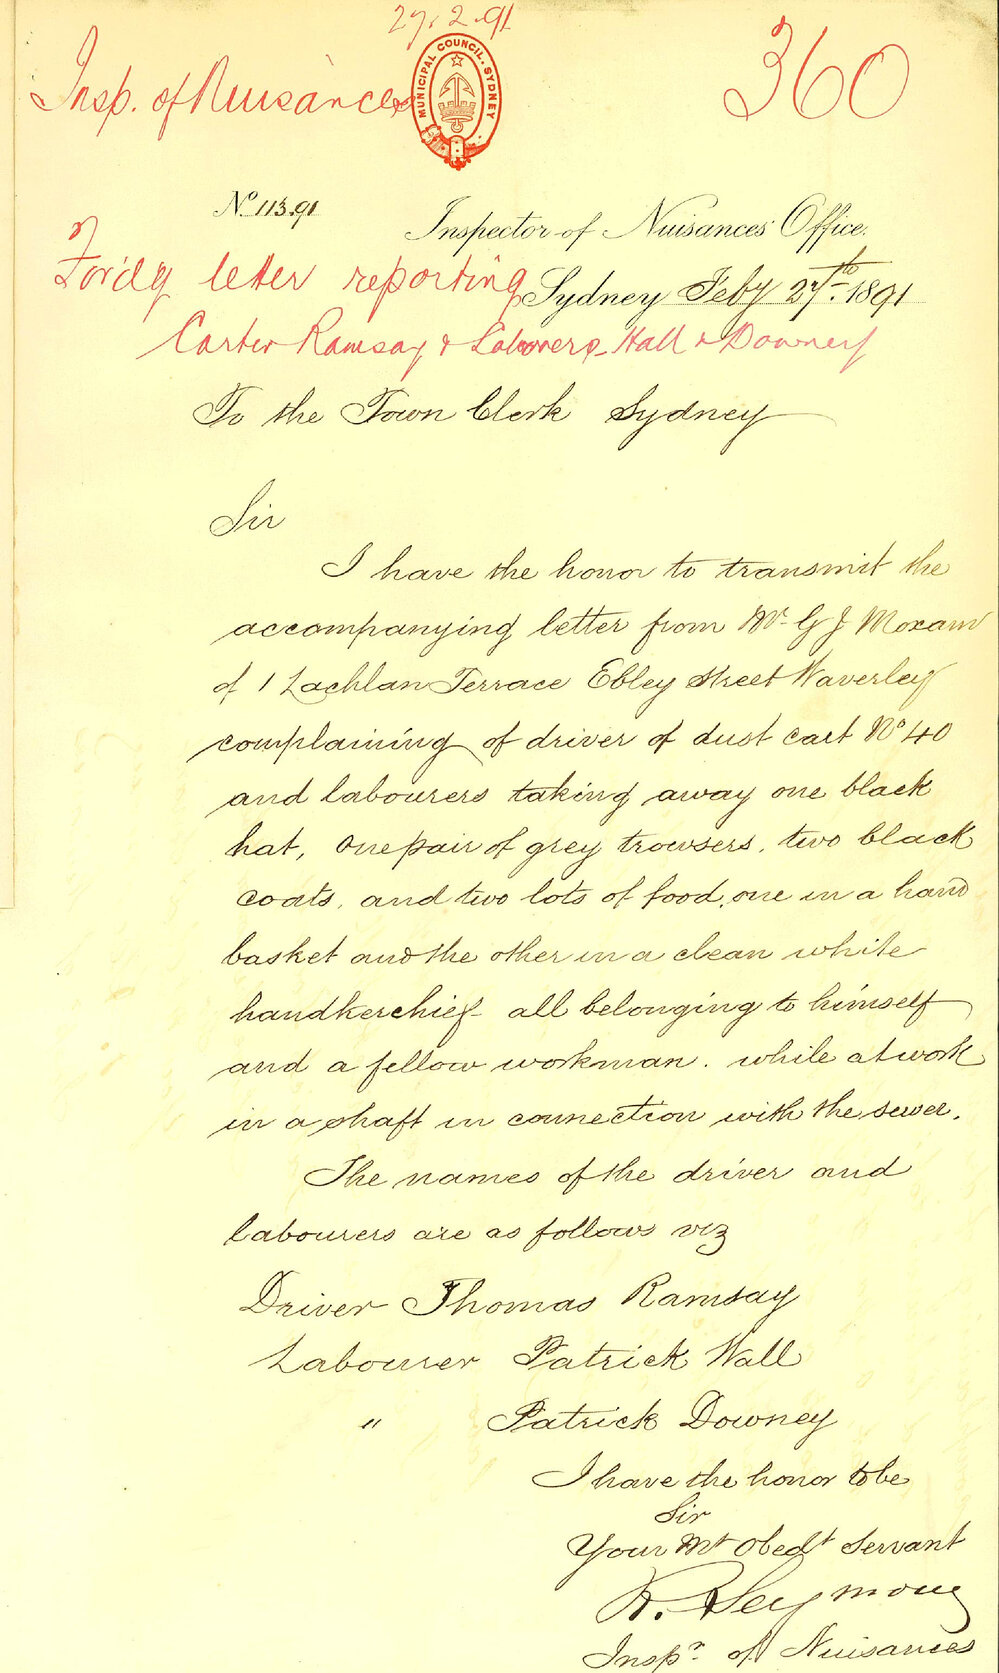 27.2.91
Insp. of Nuisances
MUNICIPAL COUNCIL. SYDNEY
360
No 113.91
Inspector of Nuisances Office.
Fordg letter reporting
Sydney Feby 27th 1891
Carter Ramsay & Laborers Hall & Downey
To the Town Clerk Sydney
Sir
I have the honor to transmit the
accompanying letter from Mr G J Moxam
of 1 Lachlan Terrace Ebley Street Waverley
complaining of driver of dust cart No 40
and labourers taking away one black
hat, one pair of grey trowsers, two black
coats, and two lots of food, one in a hand
basket and the other in a clean white
handkerchief all belonging to himself
and a fellow workman. while at work
in a shaft in connection with the sewer.
The names of the driver and
labourers are as follows viz
Driver Thomas Ramsay
Labourer Patrick Wall
" Patrick Downey
I have the honor to be
Sir
Your Mt Obedt Servant
R. Seymour
Inspr of Nuisances